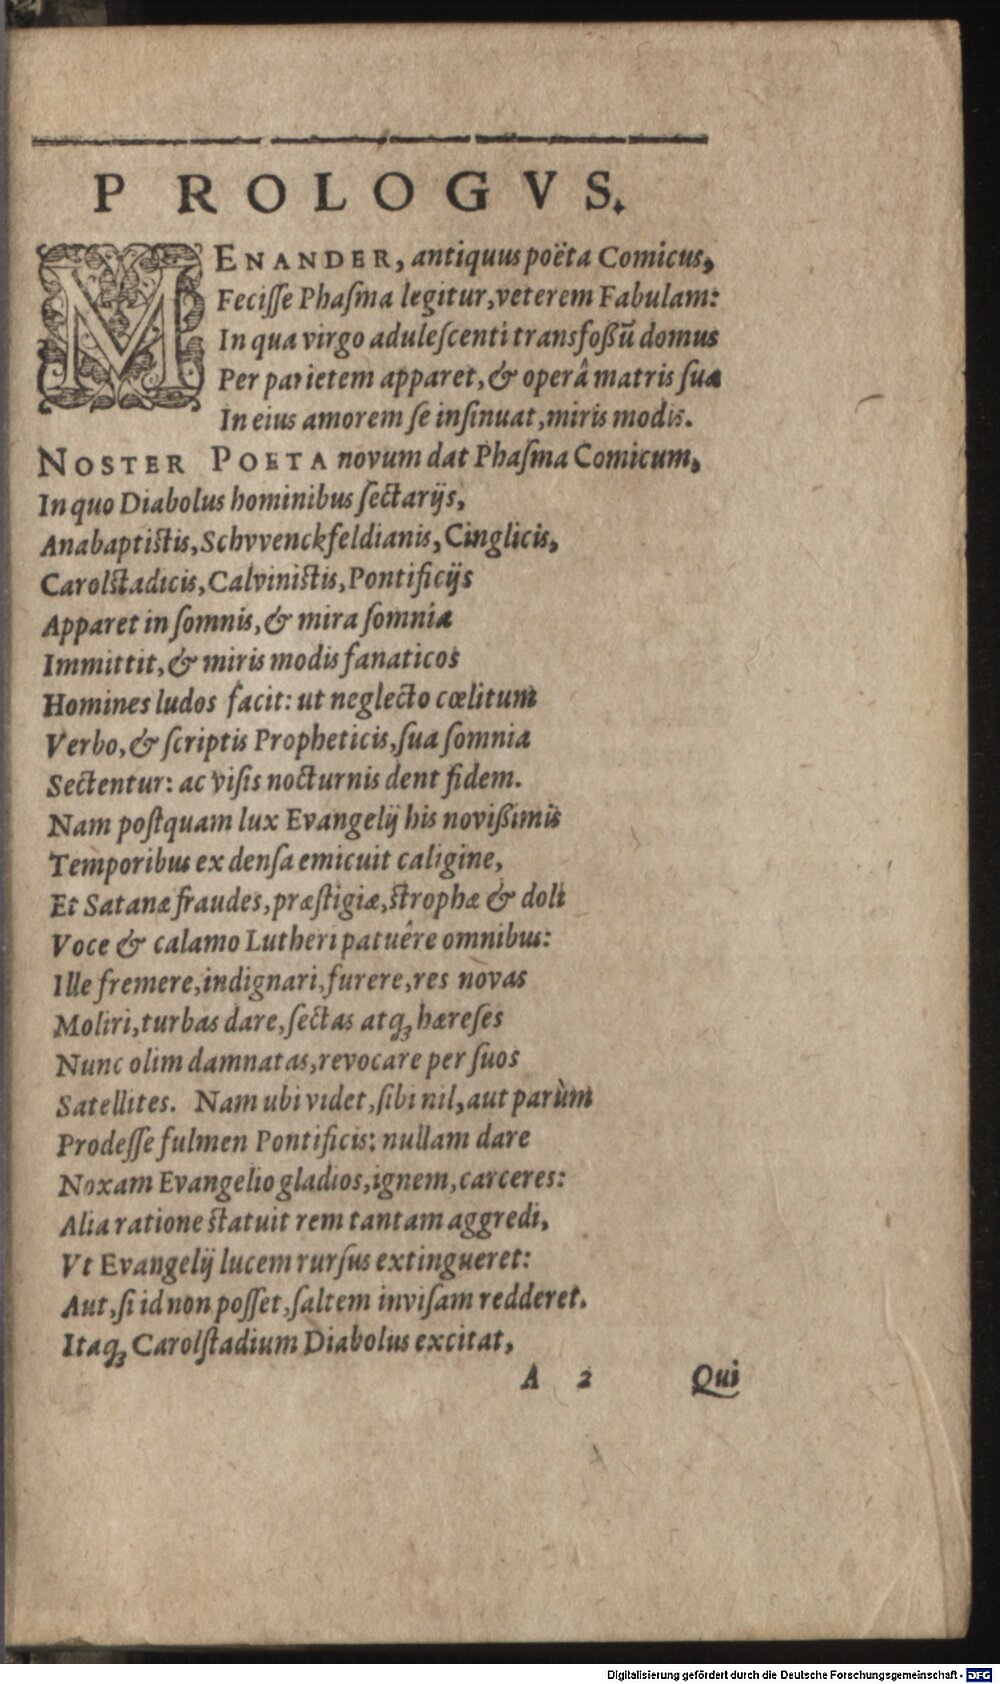 PROLOGVS.
MENANDER, antiquus poëta Comicus,
Feciſſe Phaſma legitur, veterem Fabulam:
In qua virgo aduleſcenti transfoßũ domus
Per parietem apparet, & operâ matris ſuæ
In eius amorem ſe inſinuat, miris modis.
NOSTER POETA novum dat Phaſma Comicum,
In quo Diabolus hominibus ſectarijs,
Anabaptistis, Schvvenckfeldianis, Cinglicis,
Carolstadicis, Calvinistis, Pontificijs
Apparet in ſomnis, & mira ſomnia
Immittit, & miris modis fanaticos
Homines ludos facit: ut neglecto cœlitum
Verbo, & ſcriptis Propheticis, ſua ſomnia
Sectentur: ac viſis nocturnis dent fidem.
Nam poſtquam lux Evangelij his novißimis
Temporibus ex denſa emicuit caligine,
Et Satanæ fraudes, præſtigiæ, strophæ & doli
Voce & calamo Lutheri patuêre omnibus:
Ille fremere, indignari, furere, res novas
Moliri, turbas dare, ſectas atqꝫ hæreſes
Nunc olim damnatas, revocare per ſuos
Satellites. Nam ubi videt, ſibi nil, aut parùm
Prodeſſe fulmen Pontificis: nullam dare
Noxam Evangelio gladios, ignem, carceres:
Alia ratione statuit rem tantam aggredi,
Vt Evangelij lucem rurſus extingueret:
Aut, ſi id non poſſet, ſaltem inviſam redderet.
Itaqꝫ Carolſtadium Diabolus excitat,
A 2 Qui
Digitalisierung gefördert durch die Deutsche Forschungsgemeinschaft - DFG